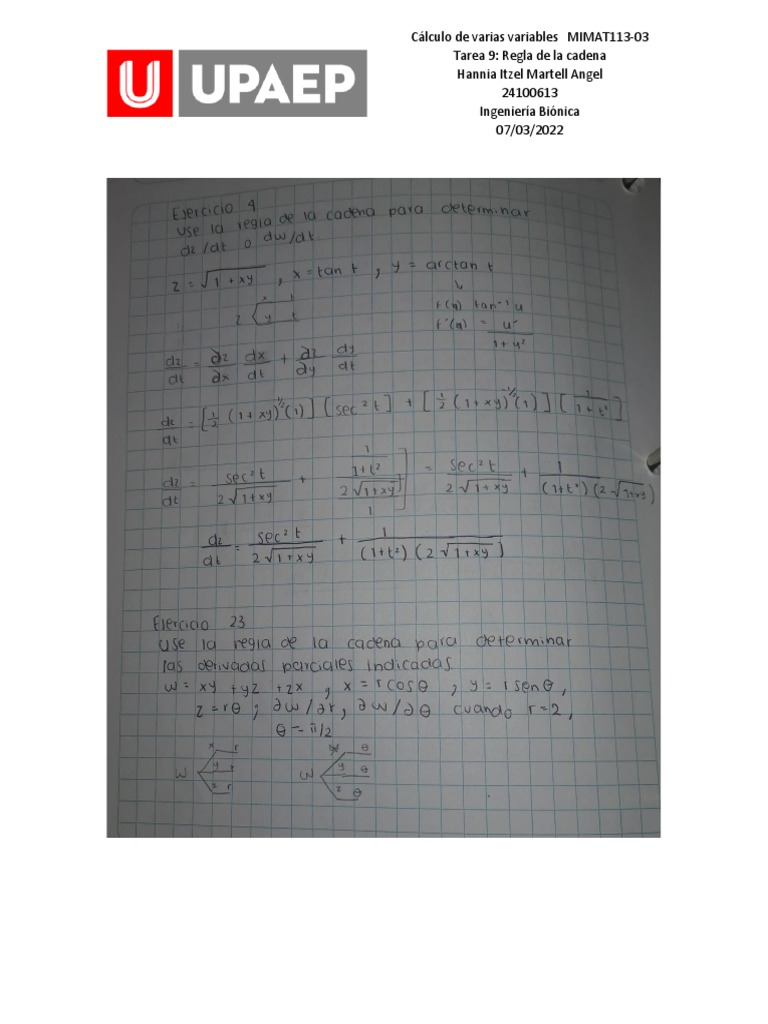 Cálculo de varias variables MIMAT113-03
Tarea 9: Regla de la cadena
Hannia Itzel Martell Angel
24100613
Ingeniería Biónica
07/03/2022
U UPAEP
Ejercicio 4
Use la regla de la cadena para determinar
dz/dt o dw/dt.
z = √(1 + xy) , x = tan t , y = arctan t
x t
z y t
f(u) tan⁻¹ u
f'(u) = u' / (1 + u²)
dz/dt = ∂z/∂x dx/dt + ∂z/∂y dy/dt
dz/dt = [1/2 (1 + xy)^½ (1)] [sec² t] + [1/2 (1 + xy)^-½ (1)] [1/(1 + t²)]
dz/dt = sec² t / (2√(1 + xy)) + (1/(1 + t²)) / (2√(1 + xy) / 1) ] = sec² t / (2√(1 + xy)) + 1 / ((1 + t²)(2√(1 + xy)))
dz/dt = sec² t / (2√(1 + xy)) + 1 / ((1 + t²)(2√(1 + xy)))
Ejercicio 23
Use la regla de la cadena para determinar
las derivadas parciales indicadas
w = xy + yz + zx , x = r cos θ , y = r sen θ ,
z = rθ ; ∂w/∂r , ∂w/∂θ cuando r = 2 ,
θ = π/2
x r x θ
w y r w y θ
z r z θ